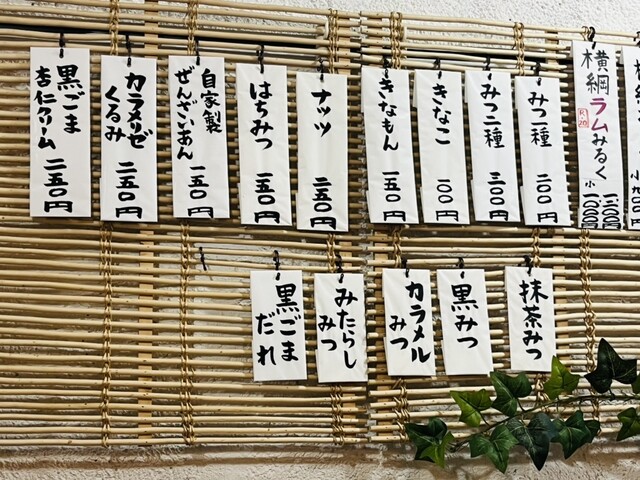 横綱
ラムみるく
R-20
一三〇〇円
小一〇〇〇円
みつ一種
二〇〇円
みつ二種
三〇〇円
きなこ
一〇〇円
きなもん
一五〇円
ナッツ
二五〇円
はちみつ
一五〇円
自家製
ぜんざいあん
一五〇円
カラメリゼ
くるみ
二五〇円
黒ごま
杏仁クリーム
二五〇円
抹茶みつ
黒みつ
カラメル
みつ
みたらし
みつ
黒ごま
だれ